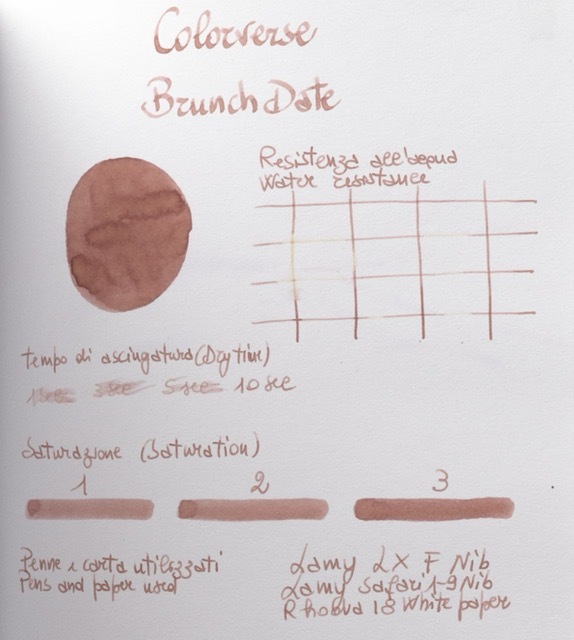 Colorverse
Brunch Date
Resistenza all'acqua
Water resistance
tempo di asciugatura (Dry time)
1 sec 3 sec 5 sec 10 sec
Saturazione (Saturation)
1 2 3
Penne e carta utilizzati
Pens and paper used
Lamy LX F Nib
Lamy Safari 1-9 Nib
Rhodia 18 White paper